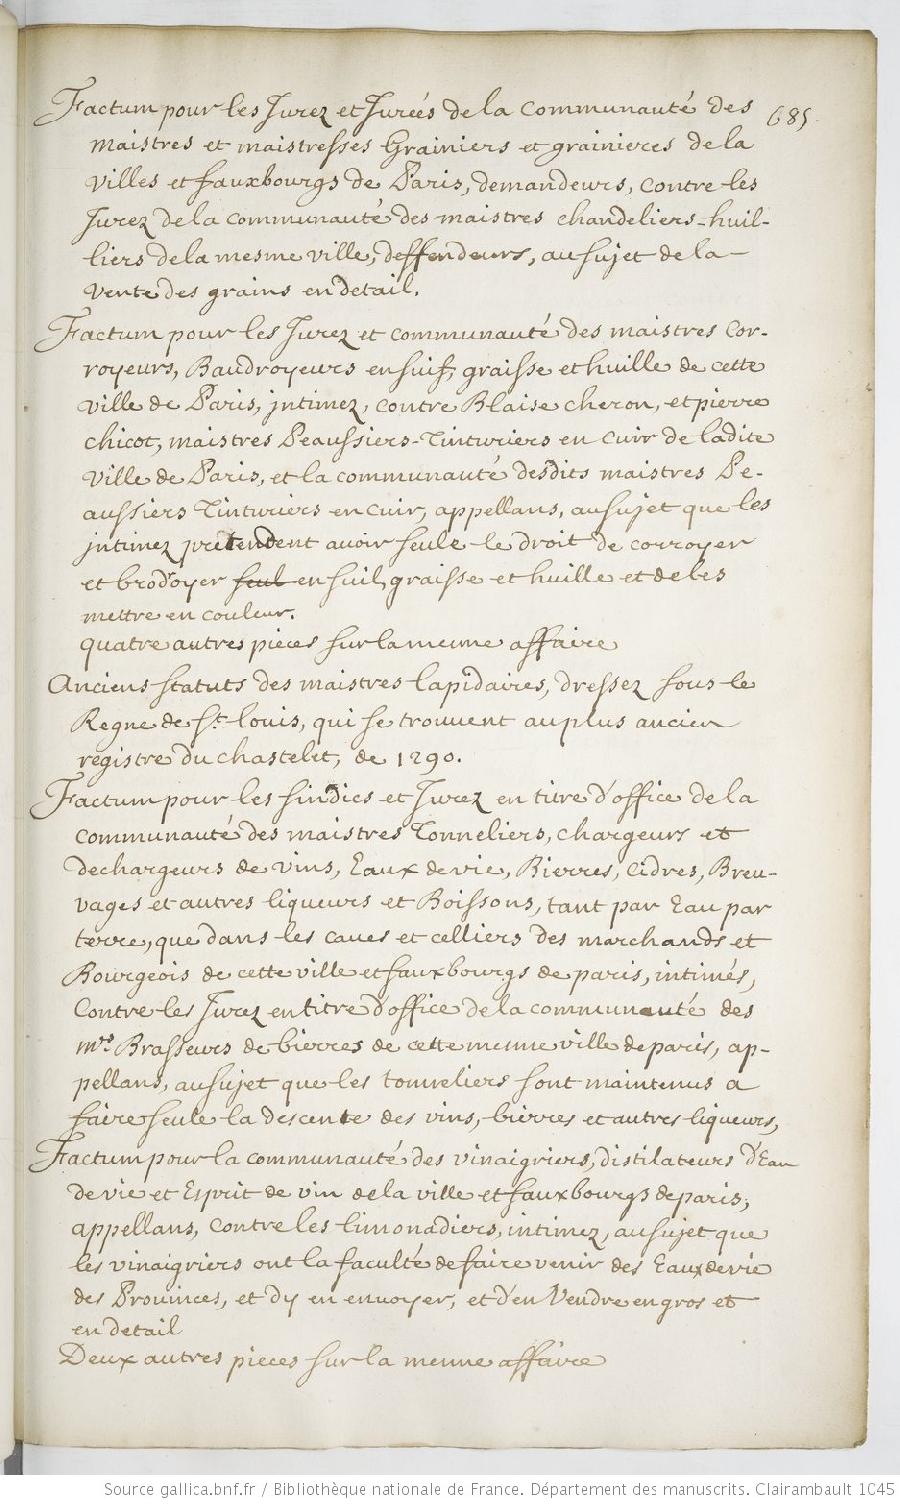 685
Factum pour les Jurez et Jurées de la Communauté des
maistres et maistresses Grainiers et grainieres de la
villes et fauxbourgs de Paris, demandeurs, contre les
Jurez de la communauté des maistres chandeliers-huil-
liers de la mesme ville, deffendeurs, au sujet de la-
vente des grains en detail.
Factum pour les Jurez et communauté des maistres cor-
royeurs, Baudroyeurs en suif, graisse et huille de cette
ville de Paris, jntimez, contre Blaise cheron, et pierre
chicot, maistres Peaussiers-Tinturiers en cuir de ladite
ville de Paris, et la communauté desdits maistres Pe-
aussiers Tinturiers en cuir, appellans, au sujet que les
jntimez prétendent avoir seule le droit de corroyer
et brodoyer seul en suil, graisse et huille et de les
mettre en couleur.
quatre autres pieces sur la mesme affaire
Anciens statuts des maistres lapidaires, dressez sous le
Regne de St. louis, qui se trouvent au plus ancien
registre du chastelet, de 1290.
Factum pour les sindics et Jurez en titre d'office de la
communauté des maistres Tonneliers, chargeurs et
dechargeurs de vins, Eaux de vie, Bierres, Cidres, Breu-
vages et autres liqueurs et Boissons, tant par Eau par
terre, que dans les caves et celliers des marchands et
Bourgeois de cette ville et fauxbourgs de paris, intimés,
Contre les Jurez en titre d'office de la communauté des
mres Brasseurs de bierres de cette mesme ville de paris, ap-
pellans, au sujet que les tonneliers sont maintenus a
faire seule la descente des vins, bierres et autres liqueurs,
Factum pour la communauté des vinaigriers, distilateurs d'Eau
de vie et Esprit de vin de la ville et fauxbourgs de paris,
appellans, contre les limonadiers, intimez, au sujet que
les vinaigriers ont la faculté de faire venir des Eaux de vie
des Provinces, et d'y en envoyer, et d'en Vendre en gros et
en detail
Deux autres pieces sur la mesme affaire
Source gallica.bnf.fr / Bibliothèque nationale de France. Département des manuscrits. Clairambault 1045